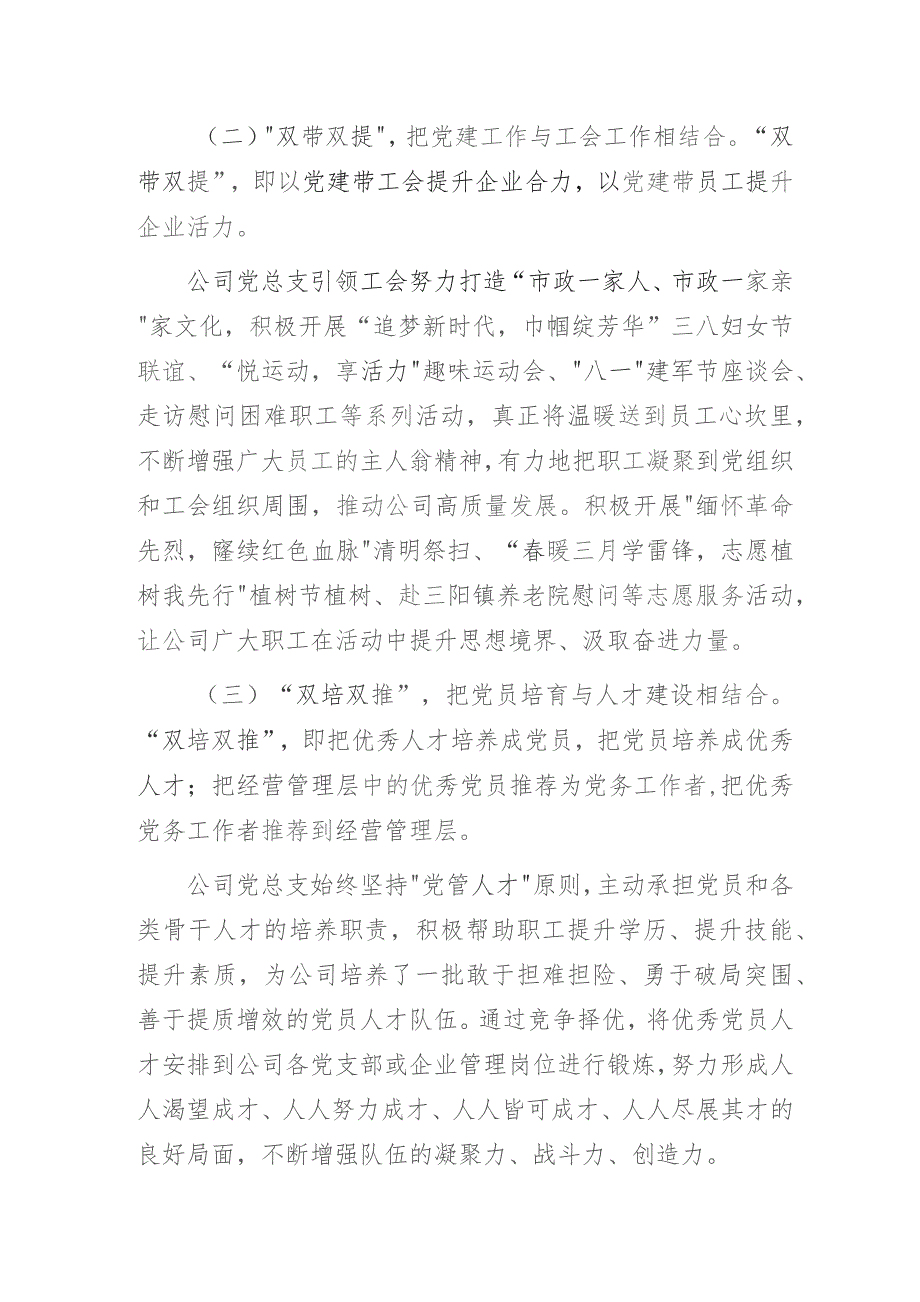 （二）"双带双提",把党建工作与工会工作相结合。“双
带双提”，即以党建带工会提升企业合力，以党建带员工提升
企业活力。
公司党总支引领工会努力打造“市政一家人、市政一家亲
"家文化，积极开展“追梦新时代，巾帼绽芳华”三八妇女节
联谊、“悦运动，享活力"趣味运动会、"八一"建军节座谈会、
走访慰问困难职工等系列活动，真正将温暖送到员工心坎里，
不断增强广大员工的主人翁精神,有力地把职工凝聚到党组织
和工会组织周围，推动公司高质量发展。积极开展"缅怀革命
先烈，窿续红色血脉"清明祭扫、“春暖三月学雷锋，志愿植
树我先行"植树节植树、赴三阳镇养老院慰问等志愿服务活动，
让公司广大职工在活动中提升思想境界、汲取奋进力量。
（三）“双培双推”，把党员培育与人才建设相结合。
“双培双推”，即把优秀人才培养成党员，把党员培养成优秀
人才；把经营管理层中的优秀党员推荐为党务工作者,把优秀
党务工作者推荐到经营管理层。
公司党总支始终坚持"党管人才"原则,主动承担党员和各
类骨干人才的培养职责，积极帮助职工提升学历、提升技能、
提升素质，为公司培养了一批敢于担难担险、勇于破局突围、
善于提质增效的党员人才队伍。通过竞争择优，将优秀党员人
才安排到公司各党支部或企业管理岗位进行锻炼,努力形成人
人渴望成才、人人努力成才、人人皆可成才、人人尽展其才的
良好局面，不断增强队伍的凝聚力、战斗力、创造力。